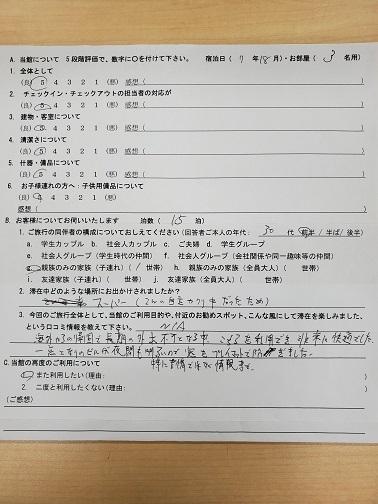 A. 当館について 5段階評価で、数字に○を付けて下さい。 宿泊日( 7 年 8月)・お部屋( 3 名用)
1. 全体として
(良) 5 4 3 2 1 (悪) 感想(
2. チェックイン・チェックアウトの担当者の対応が
(良) 5 4 3 2 1 (悪) 感想(
3. 建物・客室について
(良) 5 4 3 2 1 (悪) 感想(
4. 清潔さについて
(良) 5 4 3 2 1 (悪) 感想(
5. 什器・備品について
(良) 5 4 3 2 1 (悪) 感想(
6. お子様連れの方へ:子供用備品について
(良) 4 3 2 1 (悪)
感想(
B. お客様についてお伺いいたします 泊数( 15 泊)
1. ご旅行の同伴者の構成についておしえてください(回答者ご本人の年代: 30 代(前半/半ば/後半)
a. 学生カップル b. 社会人カップル c. ご夫婦 d. 学生グループ
e. 社会人グループ(学生時代の仲間) f. 社会人グループ(会社関係や同一趣味等の仲間)
g. 親族のみの家族(子連れ)( 1 世帯) h. 親族のみの家族(全員大人)( 世帯)
i. 友達家族(子連れ)( 世帯) j. 友達家族(全員大人)( 世帯)
2. 滞在中どのような場所にお出かけされましたか?
スーパー (2wの自主カクリ中だったため)
3. 今回のご旅行全体として、当館のご利用目的や、付近のお勧めスポット、こんな風にして滞在を楽しみました、
という口コミ情報を教えて下さい。 N/A
海外からの帰国で長期の外出不可となる中、こちらを利用でき非常に快適でした。
一点、となりのビルが夜間も明るいので窓を
C. 当館の再度のご利用について 特に苦情ではなく情報まで。
1. また利用したい(理由:
2. 二度と利用したくない(理由:
(ご感想)